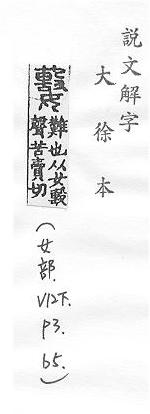 說文解字
大徐本
難也从女毄
聲苦賣切
(女部.
V12下.
P3.
b5.)